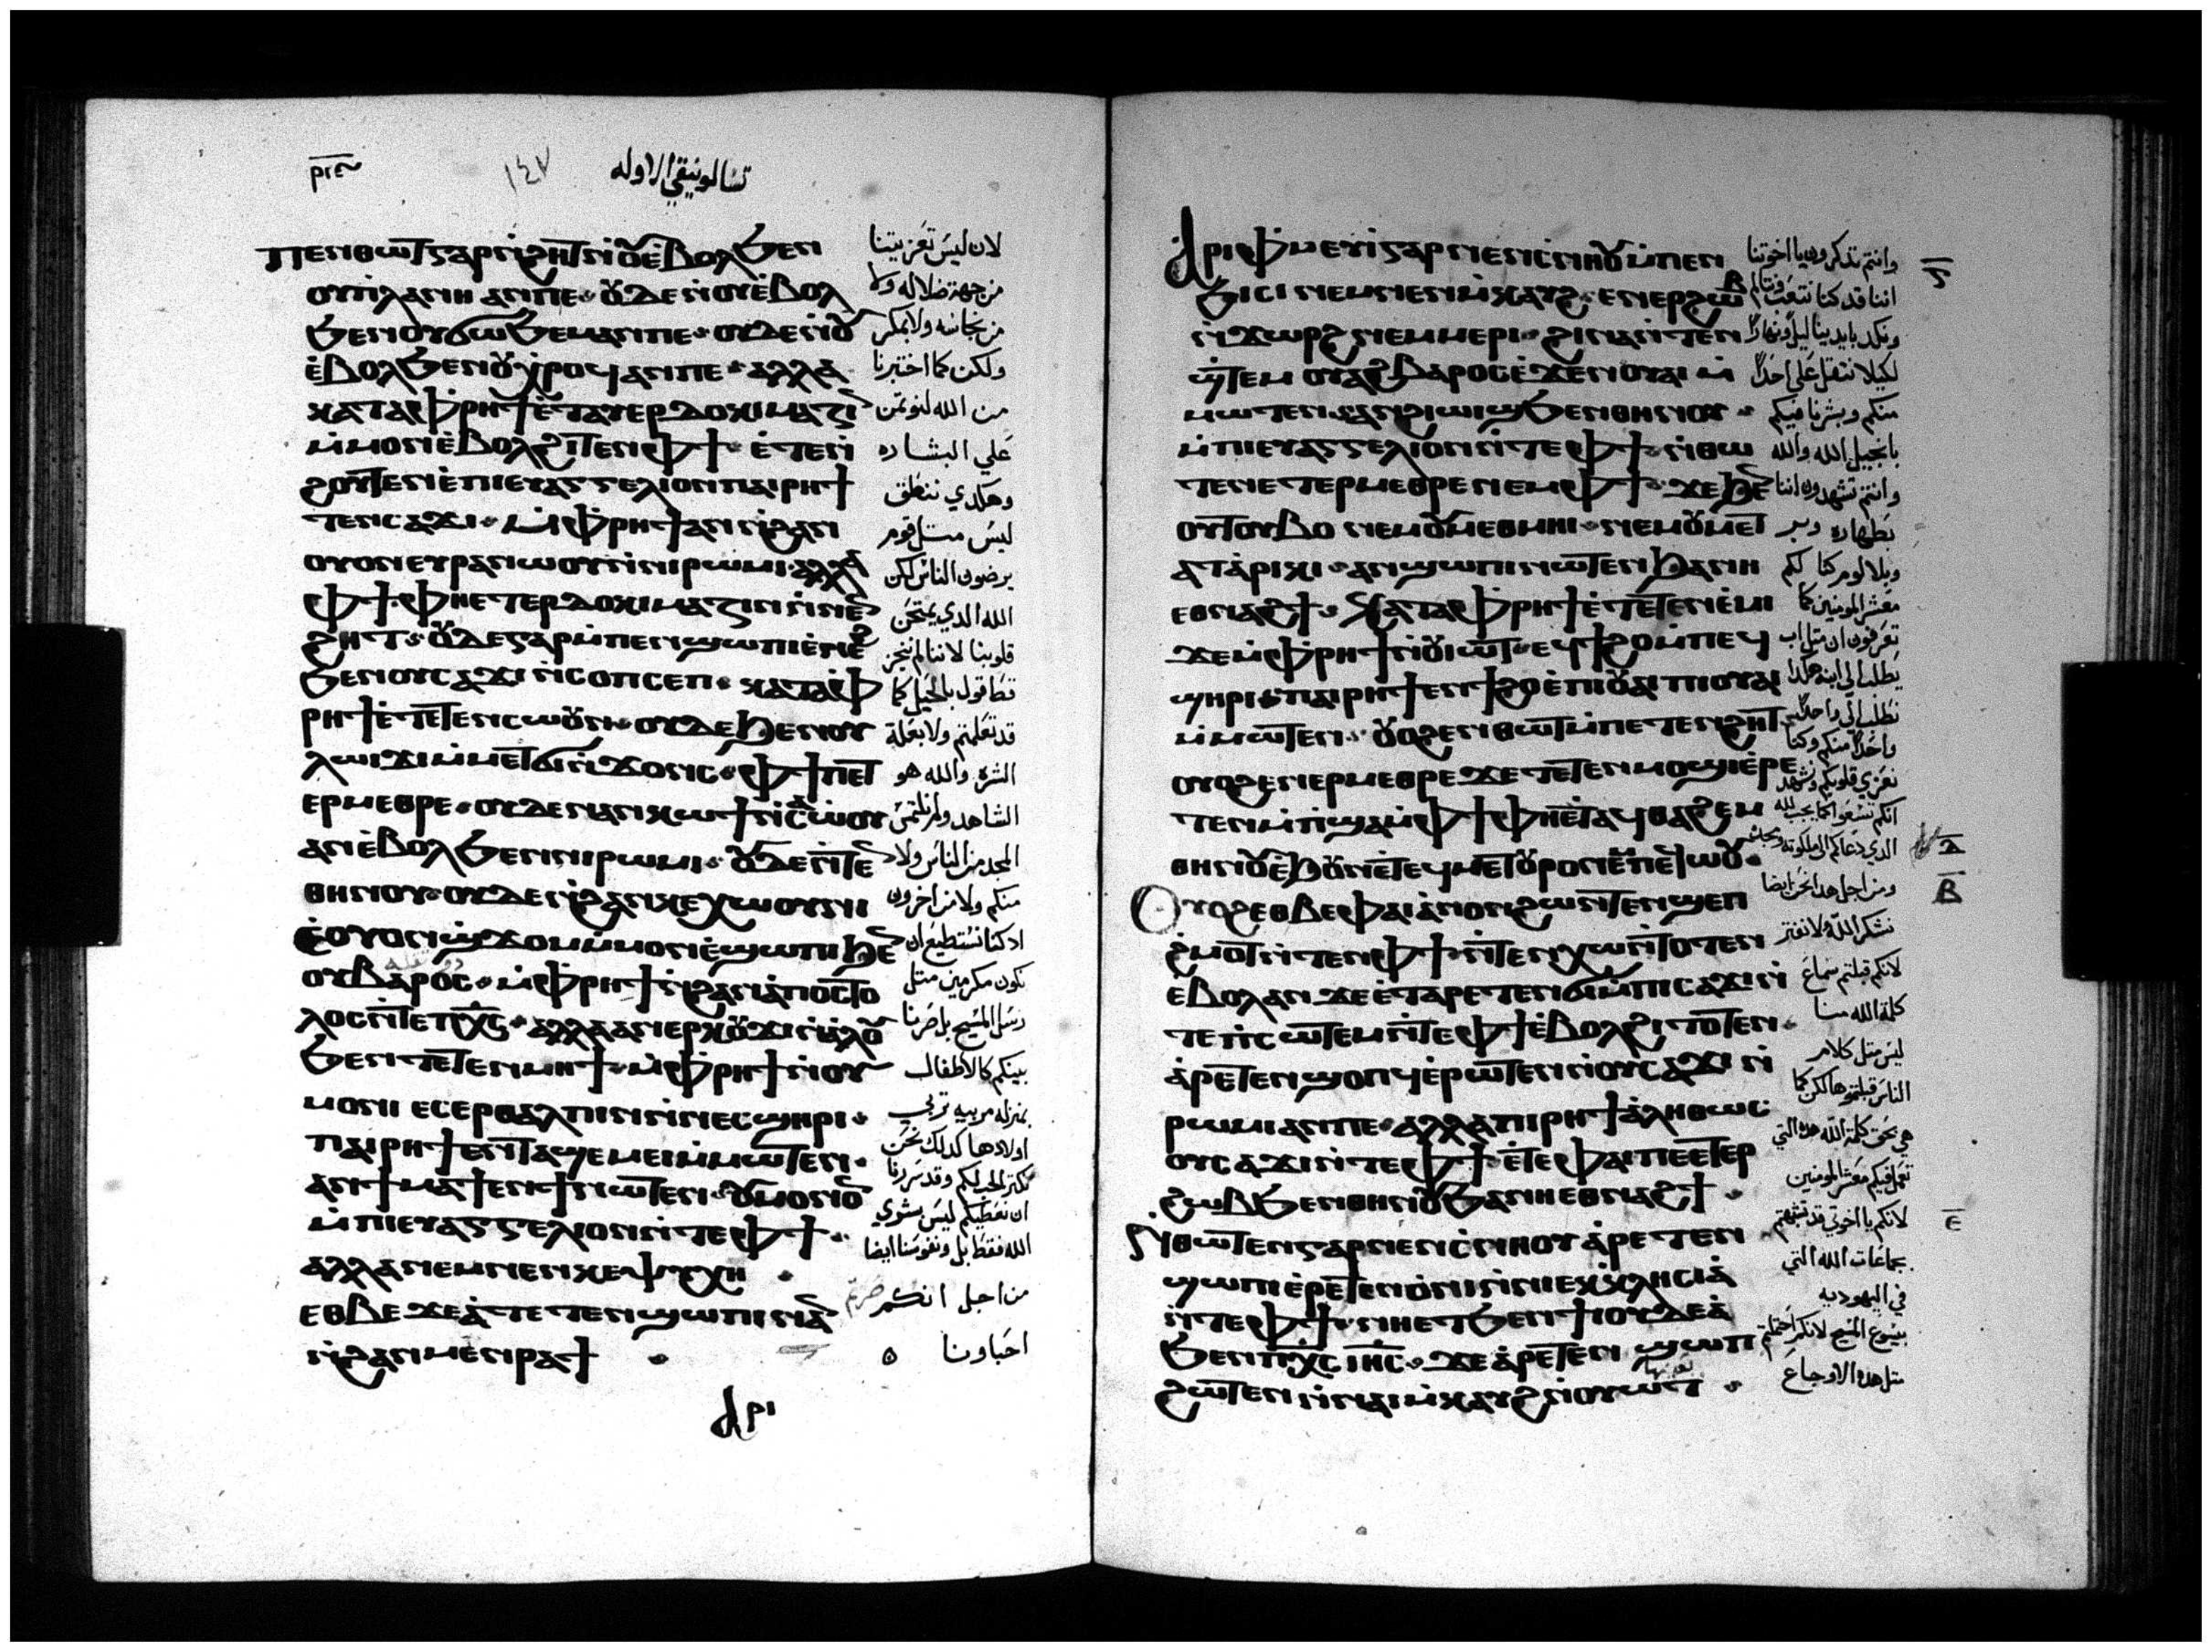 ⲣⲓⲉ
١٤٧
تسالونيقي الاوله
ⲡⲉⲛⲑⲱⲧ ⲅⲁⲣ ⲛ̀ϩⲏⲧ ⲛ̀ⲟⲩⲉ̀ⲃⲟⲗ ϧⲉⲛ
ⲟⲩⲡ̀ⲗⲁⲛⲏ ⲁⲛ ⲡⲉ ⲟⲩⲇⲉ ⲛ̀ⲟⲩⲉ̀ⲃⲟⲗ
ϧⲉⲛ ⲟⲩϭⲱϧⲉⲙ ⲁⲛ ⲡⲉ ⲟⲩⲇⲉ ⲛ̀ⲟⲩ
ⲉ̀ⲃⲟⲗ ϧⲉⲛ ⲟⲩⲭⲣⲟϥ ⲁⲛ ⲡⲉ ⲁⲗⲗⲁ
ⲕⲁⲧⲁ ⲫ̀ⲣⲏϯ ⲉ̀ⲧⲁⲩⲉⲣⲇⲟⲕⲓⲙⲁⲍⲓⲛ
ⲙ̀ⲙⲟⲛ ⲉ̀ⲃⲟⲗ ϩⲓⲧⲉⲛ ⲫϯ ⲉ̀ⲧⲉⲛ
ϩⲟⲩⲧⲉⲛ ⲉ̀ⲡⲓⲉⲩⲁⲅⲅⲉⲗⲓⲟⲛ ⲡⲁⲓⲣⲏϯ
ⲧⲉⲛⲥⲁϫⲓ ⲙ̀ⲫ̀ⲣⲏϯ ⲁⲛ ⲛ̀ϩⲁⲛ
ⲟⲩⲟⲛ ⲉⲩⲣⲁⲛⲱⲟⲩ ⲛ̀ⲛⲓⲣⲱⲙⲓ ⲁⲗⲗⲁ
ⲫϯ ⲫⲏⲉⲧⲉⲣⲇⲟⲕⲓⲙⲁⲍⲓⲛ ⲛ̀ⲛⲉⲛ
ϩⲏⲧ ⲟⲩⲇⲉ ⲅⲁⲣ ⲙ̀ⲡⲉⲛϣⲱⲡⲓ ⲉ̀ⲛⲉϩ
ϧⲉⲛ ⲟⲩⲥⲁϫⲓ ⲛ̀ⲥⲟⲡⲥⲉⲡ ⲕⲁⲧⲁ ⲫ̀
ⲣⲏϯ ⲉ̀ⲧⲉⲧⲉⲛⲥⲱⲟⲩⲛ ⲟⲩⲇⲉ ϧⲉⲛ ⲟⲩ
ⲗⲱⲓϫⲓ ⲙ̀ⲙⲉⲧϭⲓⲛ̀ϫⲟⲛⲥ ⲫϯ ⲡⲉⲧ
ⲉⲣⲙⲉⲑⲣⲉ ⲟⲩⲇⲉ ⲛⲁⲛⲕⲱϯ ⲛ̀ⲥⲁ ⲱⲟⲩ
ⲁⲛ ⲉ̀ⲃⲟⲗ ϧⲉⲛ ⲛⲓⲣⲱⲙⲓ ⲟⲩⲇⲉ ⲛ̀ⲧⲉⲛ
ⲑⲏⲛⲟⲩ ⲟⲩⲇⲉ ⲛ̀ϩⲁⲛⲕⲉⲭⲱⲟⲩⲛⲓ
ⲉⲟⲩⲟⲛϣ̀ϫⲟⲙ ⲙ̀ⲙⲟⲛ ⲉ̀ϣⲱⲡⲓ ϧⲉⲛ
ⲟⲩⲃⲁⲣⲟⲥ ⲙ̀ⲫ̀ⲣⲏϯ ⲛ̀ϩⲁⲛⲁ̀ⲡⲟⲥⲧⲟ
ⲗⲟⲥ ⲛ̀ⲧⲉ ⲡⲭⲥ ⲁⲗⲗⲁ ⲁⲛⲉⲣⲕⲟⲩϫⲓ ⲛ̀ⲁ̀ⲗⲟⲩ
ϧⲉⲛ ⲧⲉⲧⲉⲛⲙⲏϯ ⲙ̀ⲫ̀ⲣⲏϯ ⲛ̀ⲟⲩ
ⲙⲟⲛⲓ ⲉⲥⲉⲣⲑⲁⲗⲡⲓⲛ ⲛ̀ⲛⲉⲥϣⲏⲣⲓ
ⲡⲁⲓⲣⲏϯ ⲉⲛϭⲓϣϣⲱⲟⲩ ⲙ̀ⲙⲱⲧⲉⲛ
ⲁⲛϯⲙⲁϯ ⲉⲛϯ ⲛⲱⲧⲉⲛ ⲟⲩⲙⲟⲛⲟⲛ
ⲙ̀ⲡⲓⲉⲩⲁⲅⲅⲉⲗⲓⲟⲛ ⲛ̀ⲧⲉ ⲫϯ
ⲁⲗⲗⲁ ⲛⲉⲙ ⲛⲉⲛⲕⲉⲯⲩⲭⲏ
ⲉⲑⲃⲉ ϫⲉ ⲁ̀ⲧⲉⲧⲉⲛϣⲱⲡⲓ ⲛⲁⲛ
ⲛ̀ϩⲁⲛⲙⲉⲛⲣⲁϯ
ⲁⲣⲓ
لان ليس تعزيتنا
من جهة ضلاله ولا
من نجاسه ولا بمكر
ولكن كما اختبرنا
من الله لنوتمن
علي البشاره
وهكدي ننطق
ليس مثل قوم
يرضون الناس لكن
الله الدي يمتحن
قلوبنا لاننا لم نجز
قط قول بالحيل كما
قد تعلمتم ولا بعلة
الشره والله هو
الشاهد ولم نلتمس
المجد من الناس ولا
منكم ولا من اخرون
اد كنا نستطيع ان
نكون مكرمين مثل
رسل المسيح بل صرنا
بينكم كالاطفال
بمنزله مربيه تربي
اولادها كدلك نحن
وقد سررنا
ان نعطيكم ليس بشري
الله فقط بل ونفوسنا ايضا
من اجل انكم صرتم
احباونا
ⲁⲣⲓⲫ̀ⲙⲉⲩⲓ ⲅⲁⲣ ⲛⲉⲛⲥ̀ⲛⲏⲟⲩ ⲙ̀ⲡⲉⲛ
ϧⲓⲥⲓ ⲛⲉⲙ ⲛⲉⲛⲙ̀ⲕⲁⲩϩ ⲉⲛⲉⲣϩⲱⲃ
ⲛ̀ϫⲱⲣϩ ⲛⲉⲙ ⲙⲉⲣⲓ ϩⲓⲛⲁ ⲛ̀ⲧⲉⲛ
ϣ̀ⲧⲉⲙ ⲟⲩⲁϩⲃⲁⲣⲟⲥ ⲉ̀ϫⲉⲛ ⲟⲩⲁⲓ ⲙ̀
ⲙⲱⲧⲉⲛ ⲁⲛϩⲓⲱⲓϣ ϧⲉⲛ ⲑⲏⲛⲟⲩ
ⲙ̀ⲡⲓⲉⲩⲁⲅⲅⲉⲗⲓⲟⲛ ⲛ̀ⲧⲉ ⲫϯ ⲛ̀ⲑⲱ
ⲧⲉⲛ ⲉⲧⲉⲣⲙⲉⲑⲣⲉ ⲛⲉⲙ ⲫϯ ϫⲉ ϧⲉⲛ
ⲟⲩⲧⲟⲩⲃⲟ ⲛⲉⲙ ⲟⲩⲙⲉⲑⲙⲏⲓ ⲛⲉⲙ ⲟⲩⲙⲉⲧ
ⲁⲧⲁ̀ⲣⲓⲕⲓ ⲁⲛϣⲱⲡⲓ ⲛⲱⲧⲉⲛ ϧⲁ ⲛⲏ
ⲉⲑⲛⲁϩϯ ⲕⲁⲧⲁ ⲫ̀ⲣⲏϯ ⲉ̀ⲧⲉⲧⲉⲛⲉ̀ⲙⲓ
ϫⲉ ⲙ̀ⲫ̀ⲣⲏϯ ⲛ̀ⲟⲩⲓⲱⲧ ⲉϥϯϩⲟ ⲙ̀ⲡⲉϥ
ϣⲏⲣⲓ ⲡⲁⲓⲣⲏϯ ⲉⲛϯϩⲟ ⲉ̀ⲡⲓⲟⲩⲁⲓ ⲡⲓⲟⲩⲁⲓ
ⲙ̀ⲙⲱⲧⲉⲛ ⲟⲩⲟϩ ⲉⲛⲑⲱⲧ ⲙ̀ⲡⲉⲧⲉⲛϩⲏⲧ
ⲟⲩⲟϩ ⲉⲛⲉⲣⲙⲉⲑⲣⲉ ϫⲉ ⲧⲉⲧⲉⲛⲙⲟϣⲓ ⲉ̀ⲣⲉ
ⲧⲉⲛⲙ̀ⲡ̀ϣⲁ ⲙ̀ⲫϯ ⲫⲏⲉ̀ⲧⲁϥⲑⲁϩⲉⲙ
ⲑⲏⲛⲟⲩ ⲉ̀ϧⲟⲩⲛ ⲉ̀ⲧⲉϥⲙⲉⲧⲟⲩⲣⲟ ⲛⲉⲙ ⲡⲉϥⲱⲟⲩ
ⲟⲩⲟϩ ⲉⲑⲃⲉ ⲫⲁⲓ ⲁ̀ⲛⲟⲛ ϩⲱⲛ ⲧⲉⲛϣⲉⲡ
ϩ̀ⲙⲟⲧ ⲛ̀ⲧⲉⲛ ⲫϯ ⲛ̀ⲧⲉⲛⲭⲱ ⲛ̀ⲧⲟⲧⲉⲛ
ⲉⲃⲟⲗ ⲁⲛ ϫⲉ ⲉ̀ⲧⲁⲣⲉⲧⲉⲛϭⲓ ⲙ̀ⲡⲓⲥⲁϫⲓ ⲛ̀
ⲧⲉ ⲡ̀ⲥⲱⲧⲉⲙ ⲛ̀ⲧⲉ ⲫϯ ⲉ̀ⲃⲟⲗ ϩⲓⲧⲟⲧⲉⲛ
ⲁ̀ⲣⲉⲧⲉⲛϣⲟⲡϥ ⲉ̀ⲣⲱⲧⲉⲛ ⲛ̀ⲟⲩⲥⲁϫⲓ ⲛ̀
ⲣⲱⲙⲓ ⲁⲛ ⲡⲉ ⲁⲗⲗⲁ ⲡⲓⲣⲏϯ ⲁ̀ⲗⲏⲑⲱⲥ
ⲟⲩⲥⲁϫⲓ ⲛ̀ⲧⲉ ⲫϯ ⲉ̀ⲧⲉ ⲫⲁⲓ ⲡⲉ ⲉⲧⲉⲣ
ϩⲱⲃ ϧⲉⲛ ⲑⲏⲛⲟⲩ ϧⲁ ⲛⲏ ⲉⲑⲛⲁϩϯ
ⲛ̀ⲑⲱⲧⲉⲛ ⲅⲁⲣ ⲛⲉⲛⲥ̀ⲛⲏⲟⲩ ⲁ̀ⲣⲉⲧⲉⲛ
ϣⲱⲡⲓ ⲉ̀ⲣⲉⲧⲉⲛⲟ̀ⲛⲓ ⲛ̀ⲛⲓⲉⲕⲕ̀ⲗⲏⲥⲓⲁ̀
ⲛ̀ⲧⲉ ⲫϯ ⲛⲏ ⲉⲧϧⲉⲛ ϯⲓⲟⲩⲇⲉⲁ̀
ϧⲉⲛ ⲡⲭⲥ ⲓⲏⲥ ϫⲉ ⲁ̀ⲣⲉⲧⲉⲛ ϣⲱⲡ
ϩⲱⲧⲉⲛ ⲛ̀ⲛⲁⲓⲙ̀ⲕⲁⲩϩ ⲛ̀ⲟⲩⲱⲧ
وانتم تدكرون يا اخوتنا
اننا قد كنا نتعب
ونكد بايدينا ليلا ونهارا
لكيلا نثقل علي احدا
منكم وبشرنا فيكم
بانجيل الله والله
وانتم تشهدون اننا
بطهاره وبر
وبلا لوم كنا لكم
معشر المومنين كما
تعرفون ان مثل اب
يطلب الي ابنه هكدا
نطلب الي واحدا
واحدا منكم وكنا
نعزي قلوبكم ونشهد
انكم تسعوا كما يجب لله
الدي دعاكم الي ملكوته ومجده
ومن اجل هدا نحن ايضا
نشكر الله ولا نفتر
لانكم قبلتم سماع
كلمة الله منا
ليس مثل كلام
الناس قبلتموها لكن كما
هي بحق كلمة الله هده التي
تعمل فيكم معشر المومنين
لانكم يا اخوتي قد تشبهتم
بجماعات الله التي
في اليهوديه
بيسوع المسيح لانكم احتملتم
مثل هده الاوجاع
ⲇ
ⲃ
ⲉ